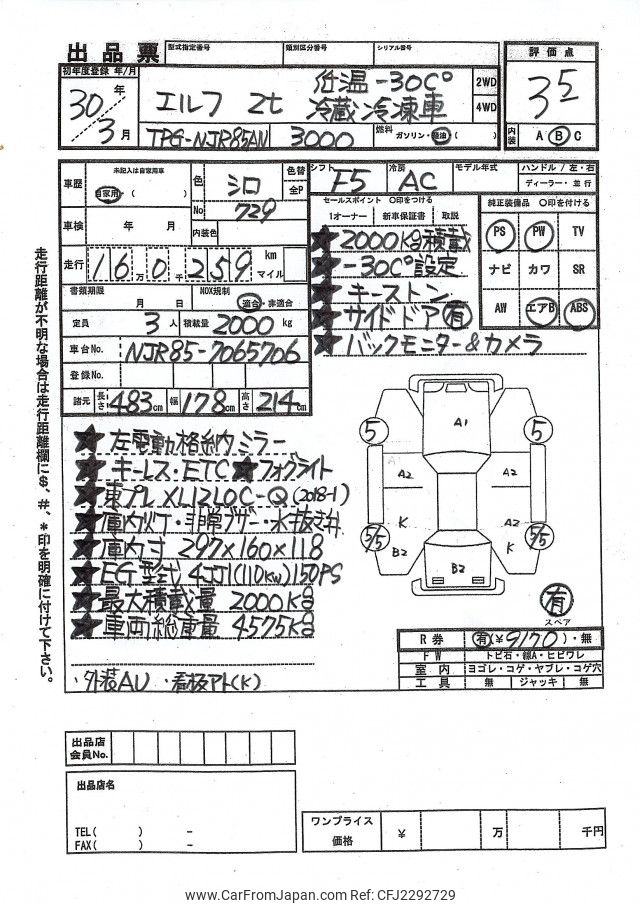 出品票
型式指定番号 類別区分番号 シリアル番号
評価点
3 5
内装 A B C
初年度登録 年/月
30年
3月
エルフ 2t
低温 -30C°
冷蔵冷凍車
2WD
4WD
TPG-NJR85AN
3000
燃料 ガソリン・軽油・( )
車歴
未記入は自家用車
自家用・( )
色 シロ
No 729
色替
全P
車検 年 月
内装色
走行 16万0千259 km
マイル
書類期限 月 日
NOX規制
適合・非適合
定員 3人 積載量 2000 kg
車台No. NJR85-7065706
登録No.
諸元 長さ 483cm 幅 178cm 高さ 214cm
シフト F5
冷房 AC
モデル年式
ハンドル / 左・右
ディーラー・並行
セールスポイント ○印をつける
1オーナー 新車保証書 取説
純正装備品 ○印を付ける
PS PW TV
ナビ カワ SR
AW エアB ABS
★2000K台積載
★-30C°設定
★キーストン
★サイドドア有
★バックモニター&カメラ
走行距離が不明な場合は走行距離欄に$、#、*印を明確に付けて下さい。
★左電動格納ミラー
★キーレス・ETC★フォグライト
★東プレXL12LOC-Q(2018-1)
★庫内灯・非常ブザー・水抜き弁
★庫内寸 297×160×118
★EG型式 4JJ1(110Kw)150PS
★最大積載量 2000K台
★車両総重量 4575K台
・外装AU ・看板アト(K)
A1
5 5
A2 A2
K A2
K
5/5 5/5
B2 B2
有
スペア
R券 有(¥9170)・無
FW トビ石・線A・ヒビワレ
室内 ヨゴレ・コゲ・ヤブレ・コゲ穴
工具 無 ジャッキ 無
出品店
会員No.
出品店名
TEL( ) -
FAX( ) -
ワンプライス
価格 ¥ 万 千円
www.CarFromJapan.com Ref: CFJ2292729